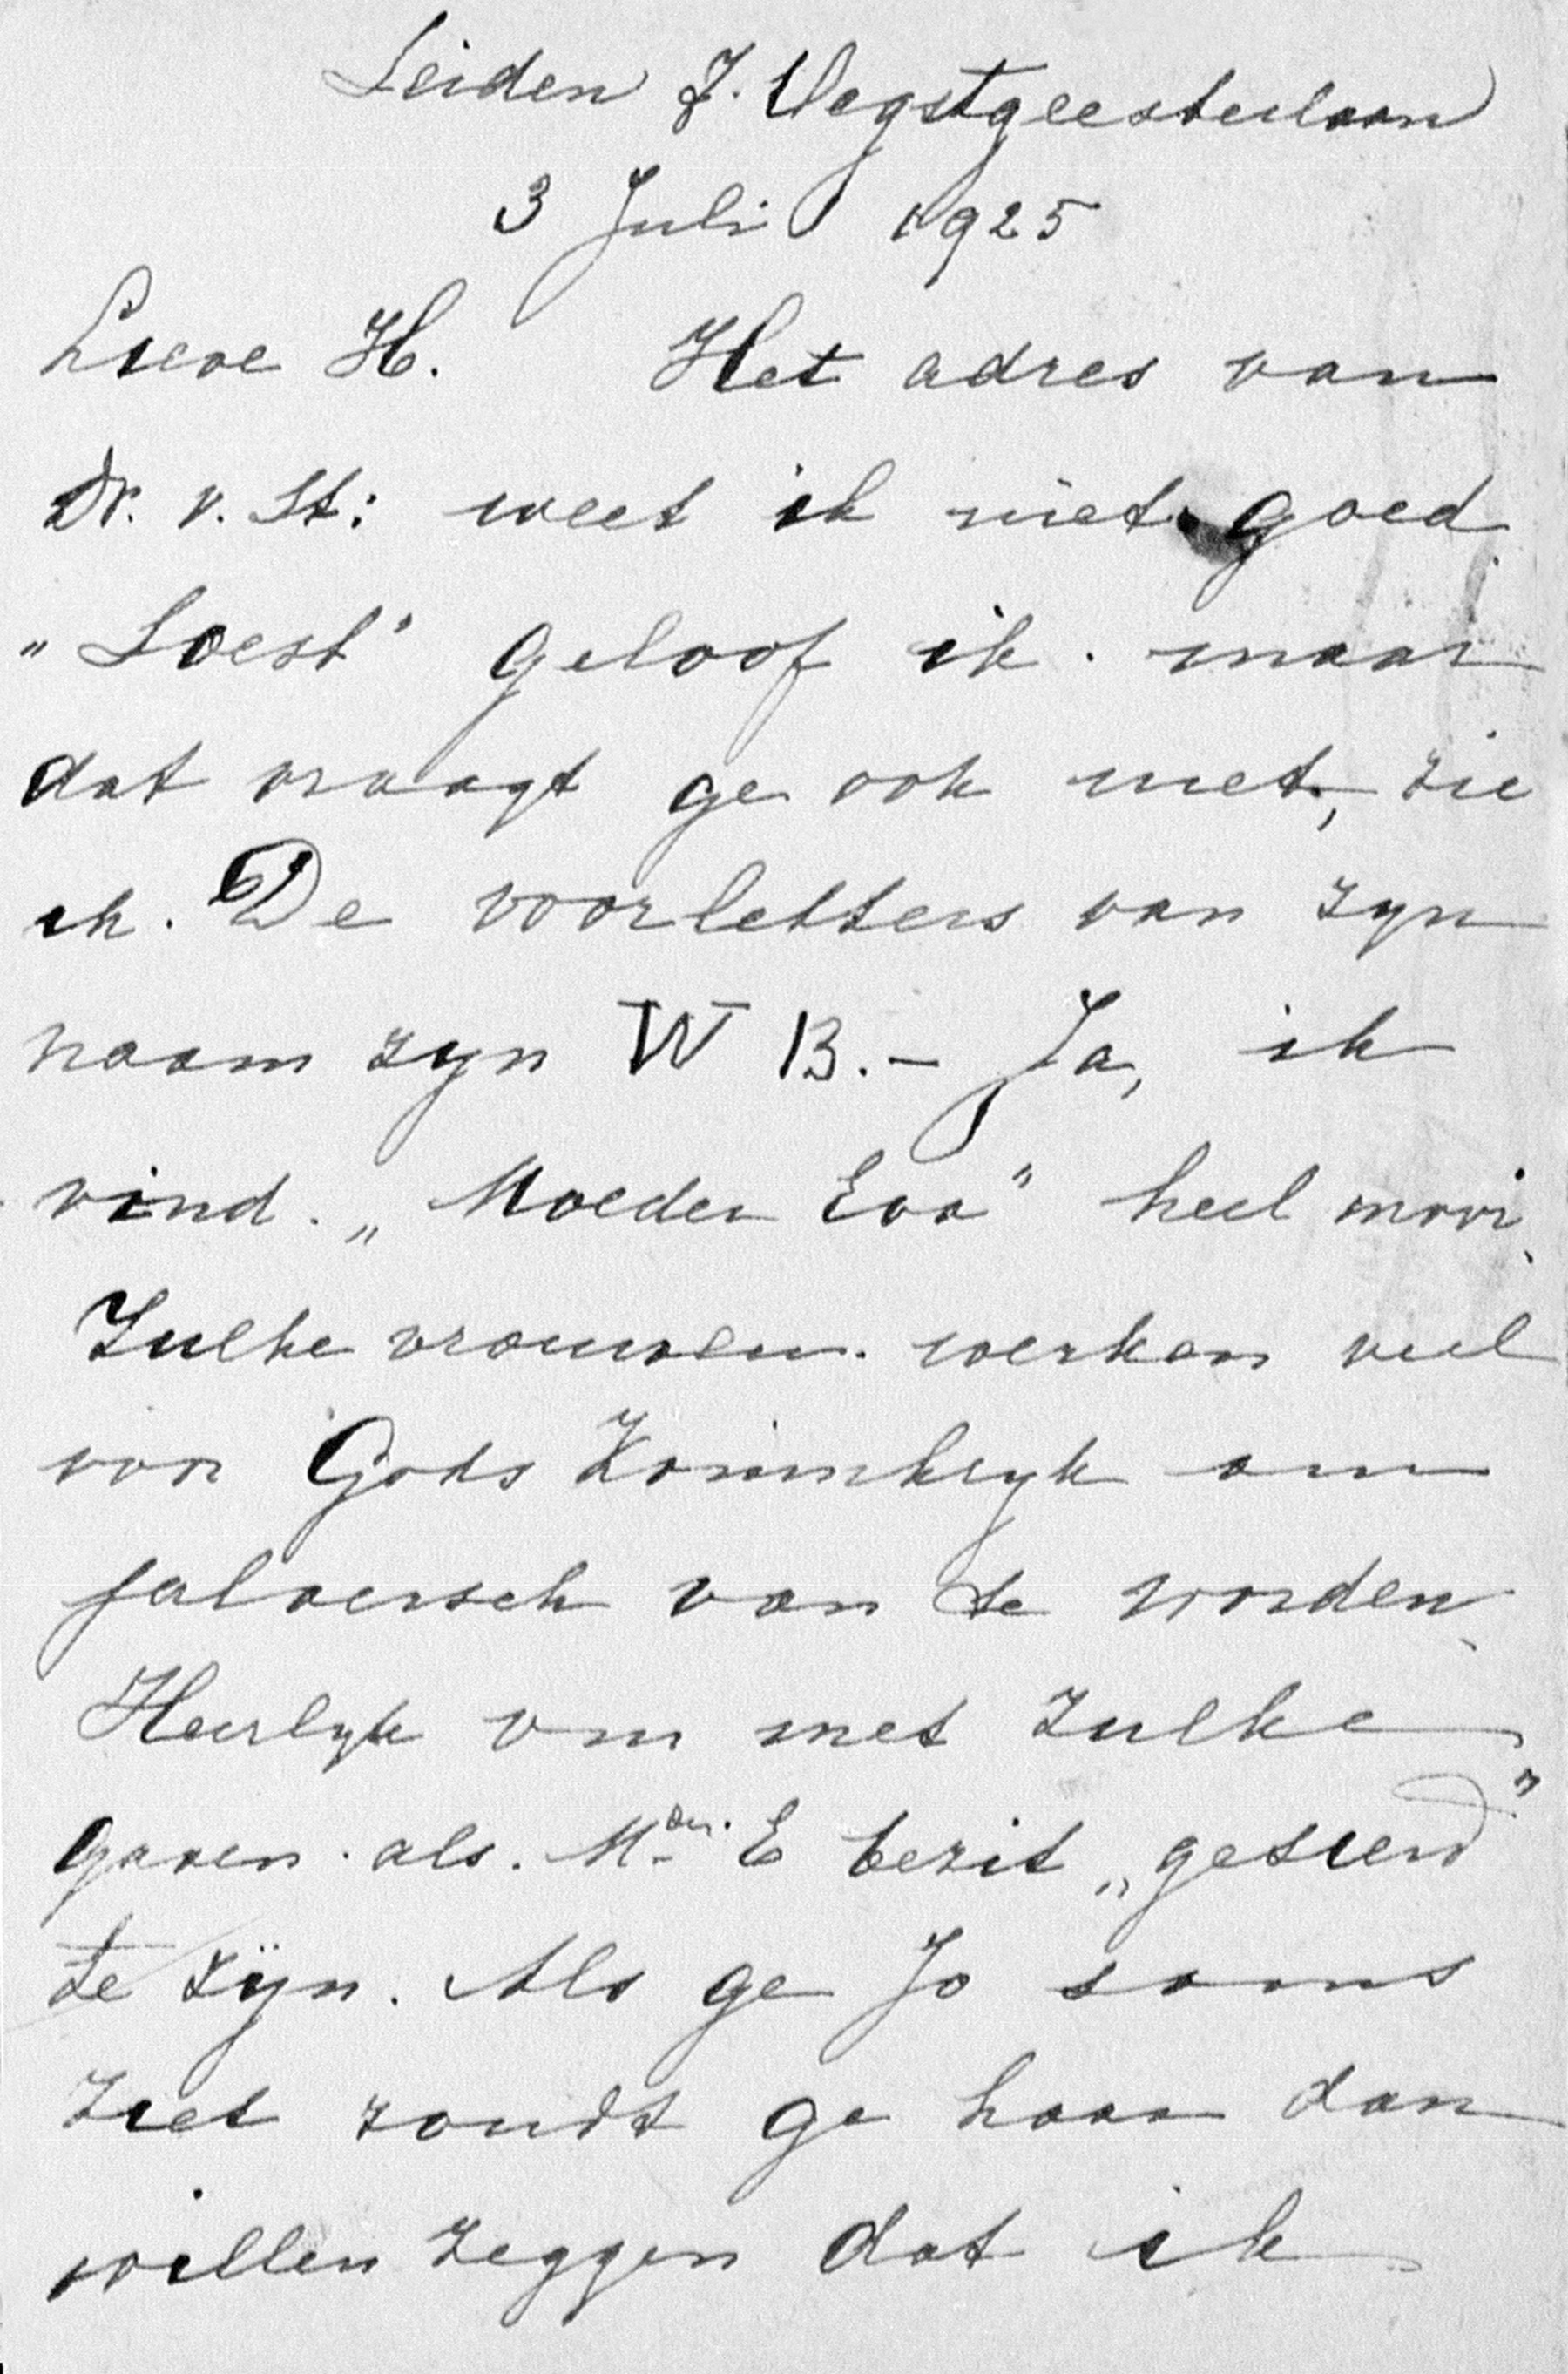 Leiden J. Oegstgeesterlaan
3 Juli 1925
Lieve H. Het adres van
Dr. v. St: weet ik niet goed
„Soest" geloof ik. maar
dat vraagt ge ook niet, zie
ik. De voorletters van zyn
naam zyn W B. - Ja, ik
vind. „Moeder Eva" heel mooi.
Zulke vrouwen. werken veel
voor Gods Koninkryk om
jaloersch van te worden.
Heerlyk om met zulke
gaven. als. Mder. E bezit „getierd"
te zÿn. Als ge Jo soms
ziet zoudt ge haar dan
willen zeggen dat ik